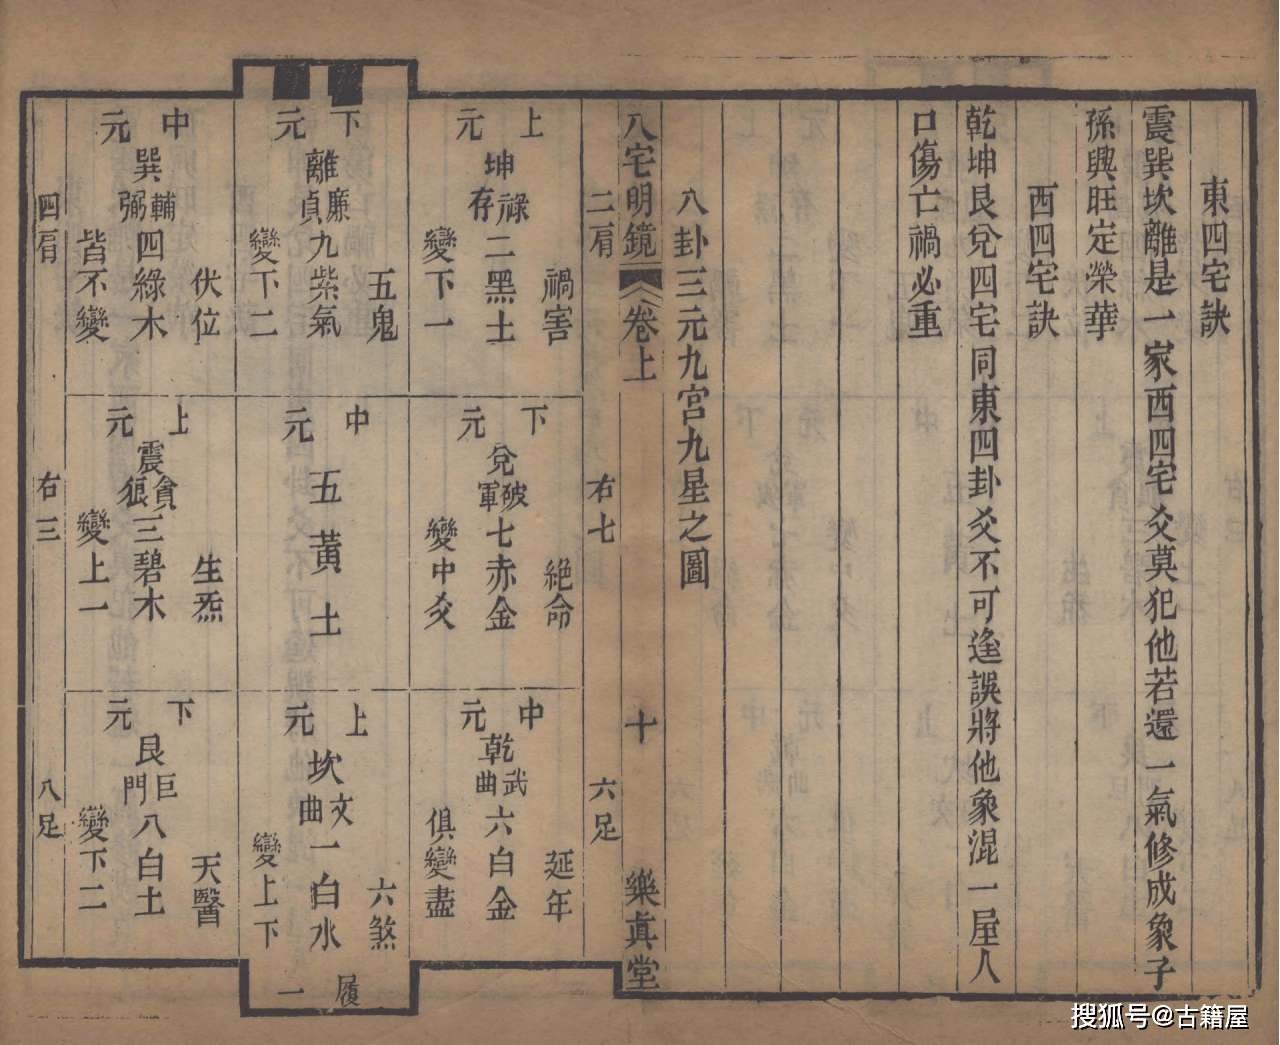 東四宅訣
震巽坎離是一家西四宅爻莫犯他若還一氣修成象子
孫興旺定榮華
西四宅訣
乾坤艮兌四宅同東四卦爻不可逢誤將他象混一屋人
口傷亡禍必重
八卦三元九宮九星之圖
八宅明鏡
卷上
十
樂真堂
二肩
右七
六足
上元
禍害
坤祿存二黑土
變下一
下元
絕命
兌破軍七赤金
變中爻
中元
延年
乾武曲六白金
俱變盡
下元
五鬼
離廉貞九紫氣
變下二
中元
五黃土
上元
六煞
坎文曲一白水
變上下
履一
中元
伏位
巽輔弼四綠木
皆不變
上元
生炁
震貪狼三碧木
變上一
下元
天醫
艮巨門八白土
變下二
四肩
右三
八足
搜狐号@古籍屋